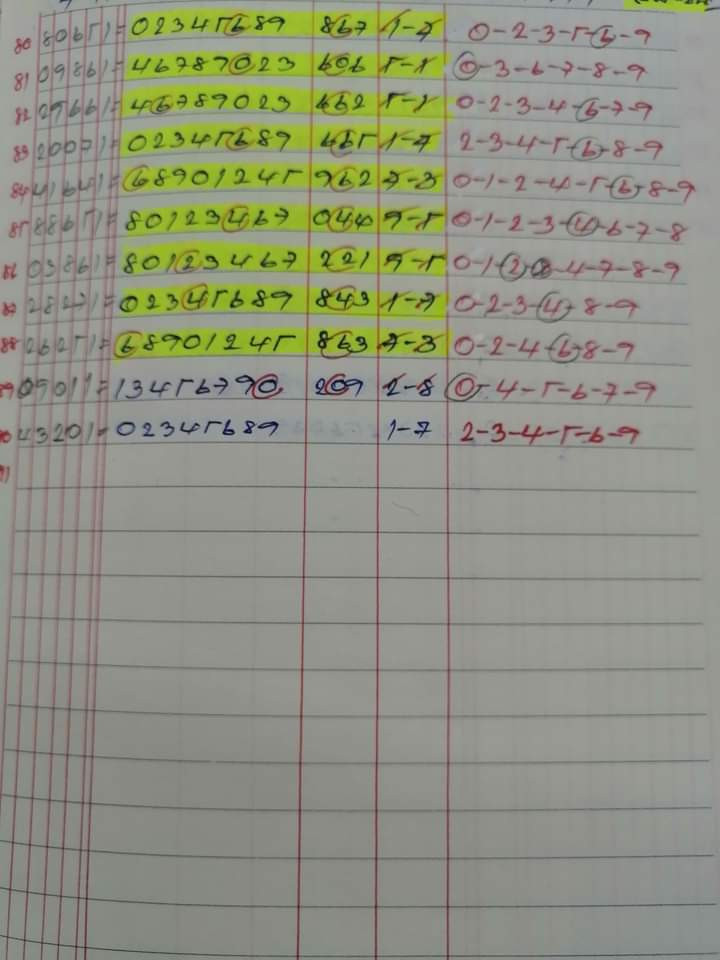 80 8065) = 02345689 867 1-7 0-2-3-5-6-9
81 0986) = 46789023 606 5-1 0-3-6-7-8-9
82 2966) = 46789023 5-1 0-2-3-4-6-7-9
83 2007) = 02345689 465 1-7 2-3-4-5-6-8-9
84 4164) = 68901245 962 7-3 0-1-2-4-5-6-8-9
85 8865) = 80123467 044 9-5 0-1-2-3-4-6-7-8
86 0386) = 80123467 221 9-5 0-1-2-4-7-8-9
87 2827) = 02345689 843 1-7 0-2-3-4-8-9
88 2625) = 68901245 863 7-3 0-2-4-6-8-9
89 0901) = 13456790 209 2-8 0-4-5-6-7-9
90 4320) = 02345689 1-7 2-3-4-5-6-9
91